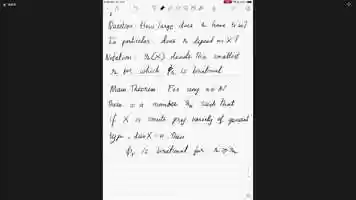 Question: How large does r have to be?
In particular does r depend on X?
Notation: r(X) denote the smallest
r for which ϕr is birational
Main Theorem For any n∈N
There is a number rn such that
if X is smooth proj variety of general
type, dim X=n, then
ϕr is birational for r≥rn